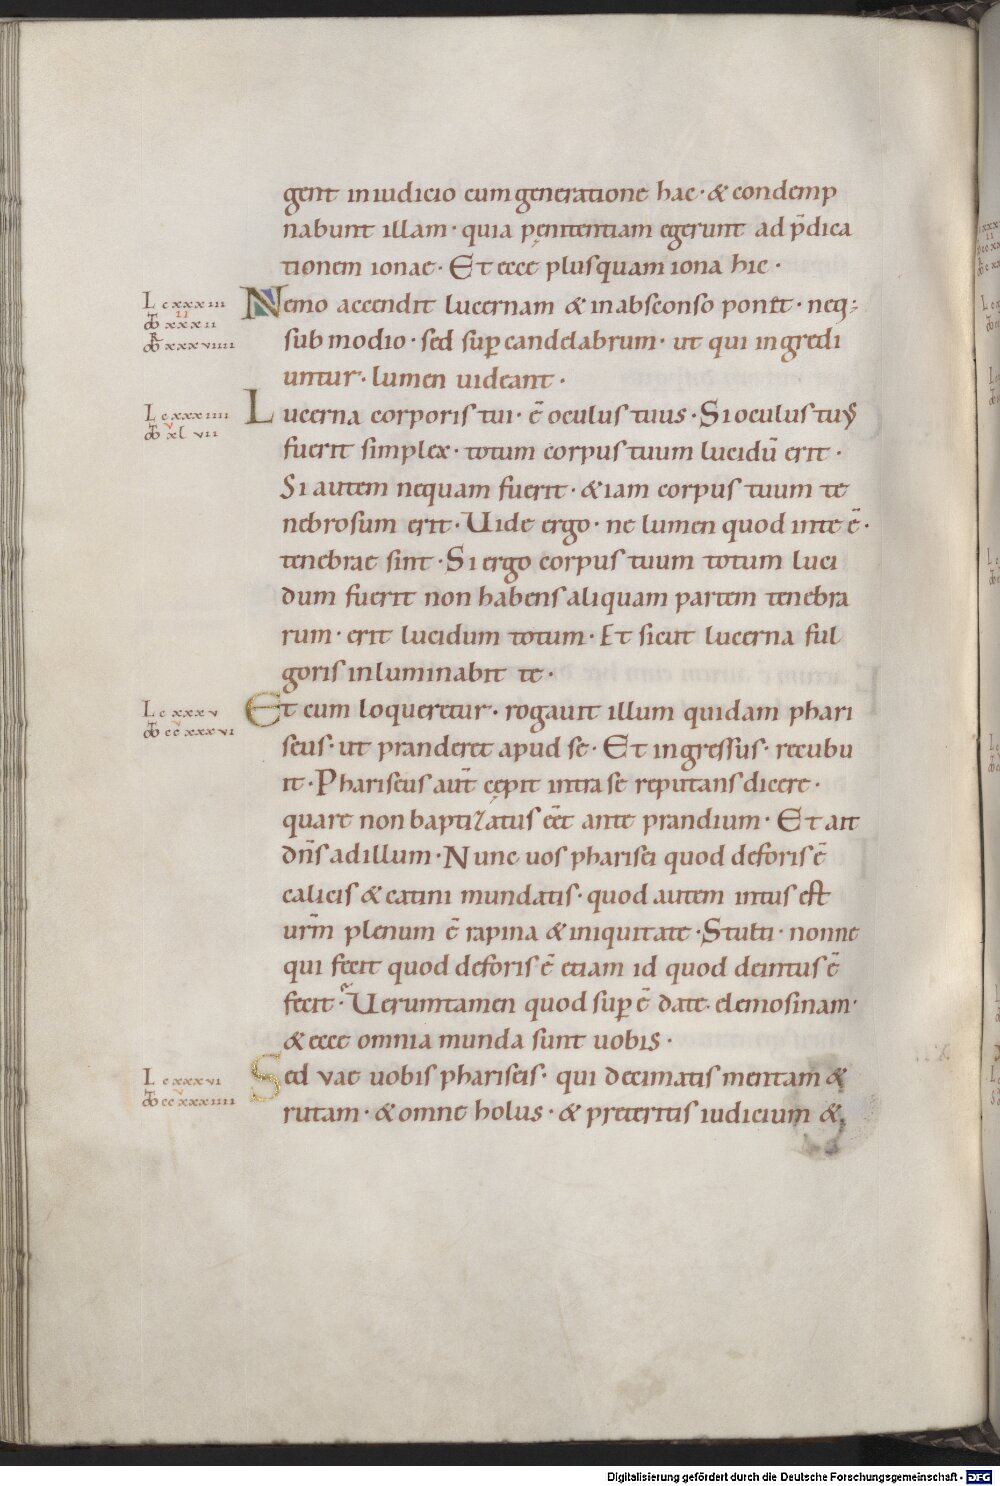 gent in iudicio cum generatione hac · & condemp
nabunt illam · quia penitentiam egerunt ad p̄dica
tionem ionae · Et ecce plus quam iona hic ·
L cxxxiii
II
xxxii
xxxviiii
Nemo accendit lucernam & in absconso ponet · neq;
sub modio · sed sup candelabrum · ut qui ingredi
untur · lumen uideant ·
L cxxxiiii
V
xlvii
Lucerna corporis tui · ē oculus tuus · Si oculus tuus
fuerit simplex · totum corpus tuum lucidū erit ·
Si autem nequam fuerit · &iam corpus tuum te
nebrosum erit · Uide ergo · ne lumen quod in te ē ·
tenebrae sint · Si ergo corpus tuum totum luci
dum fuerit non habens aliquam partem tenebra
rum · erit lucidum totum · Et sicut lucerna ful
goris inluminabit te ·
L cxxxv
V
ccxxxvi
Et cum loqueretur · rogauit illum quidam phari
seus · ut pranderet apud se · Et ingressus · recubu
it · Phariseus aut̄ cepit intra se reputans dicere ·
quare non baptizatus eēt ante prandium · Et ait
dn̄s ad illum · Nunc uos pharisei quod deforis ē
calicis & catini mundatis · quod autem intus est
urm̄ plenum ē rapina & iniquitate · Stulti · nonne
qui fecit quod deforis ē etiam id quod deintus ē
fecit · Uerumtamen quod sup ē date elemosinam ·
& ecce omnia munda sunt uobis ·
L cxxxvi
V
ccxxxiiii
Sed vae uobis phariseis · qui decimatis mentam &
rutam · & omne holus · & preteritis iudicium &
Digitalisierung gefördert durch die Deutsche Forschungsgemeinschaft - DFG